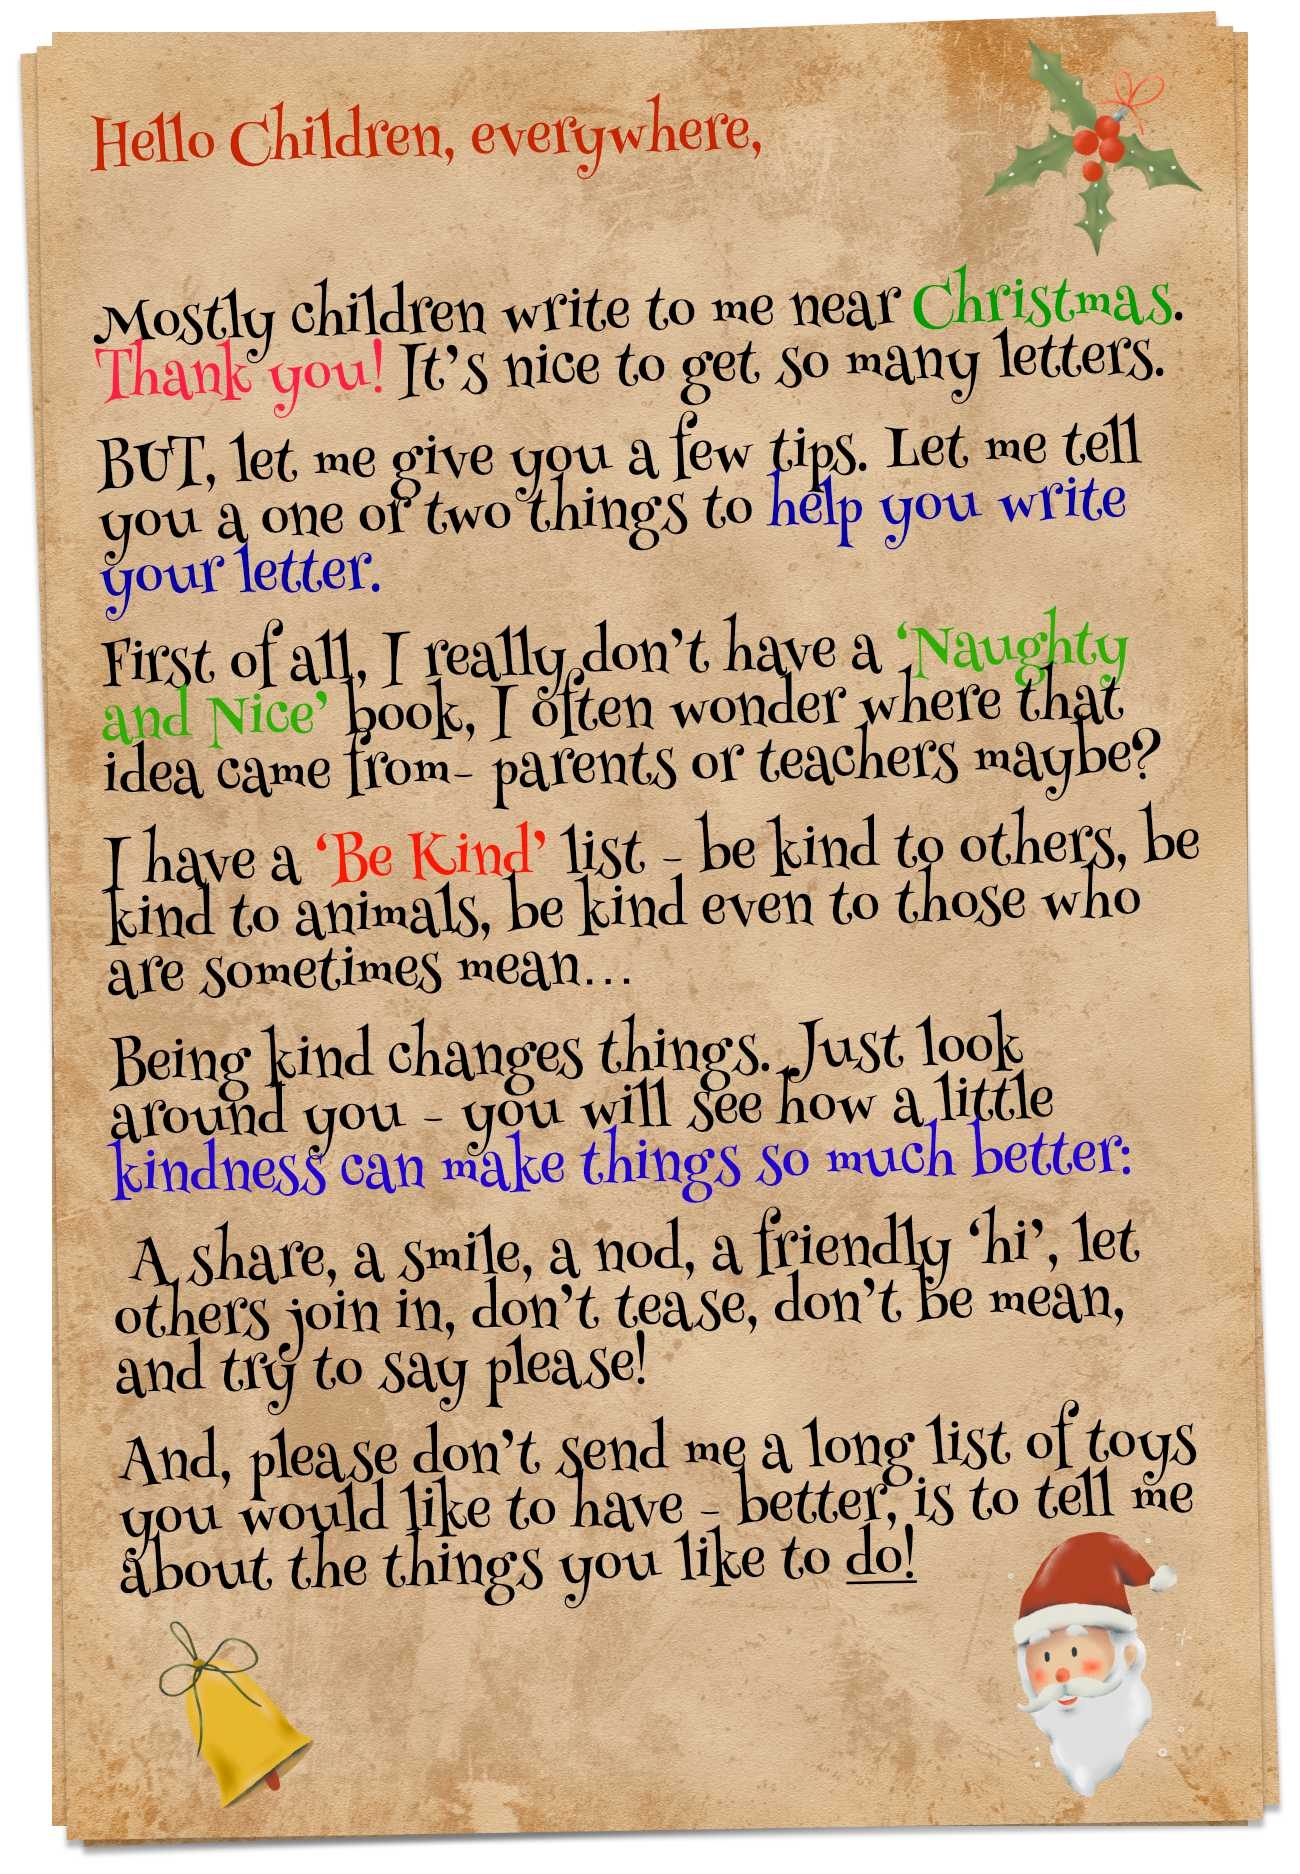 Hello Children, everywhere,
Mostly children write to me near Christmas.
Thank you! It's nice to get so many letters.
BUT, let me give you a few tips. Let me tell
you a one or two things to help you write
your letter.
First of all, I really don't have a ‘Naughty
and Nice’ book, I often wonder where that
idea came from- parents or teachers maybe?
I have a ‘Be Kind’ list - be kind to others, be
kind to animals, be kind even to those who
are sometimes mean...
Being kind changes things. Just look
around you - you will see how a little
kindness can make things so much better:
A share, a smile, a nod, a friendly ‘hi’, let
others join in, don't tease, don't be mean,
and try to say please!
And, please don't send me a long list of toys
you would like to have - better, is to tell me
about the things you like to do!